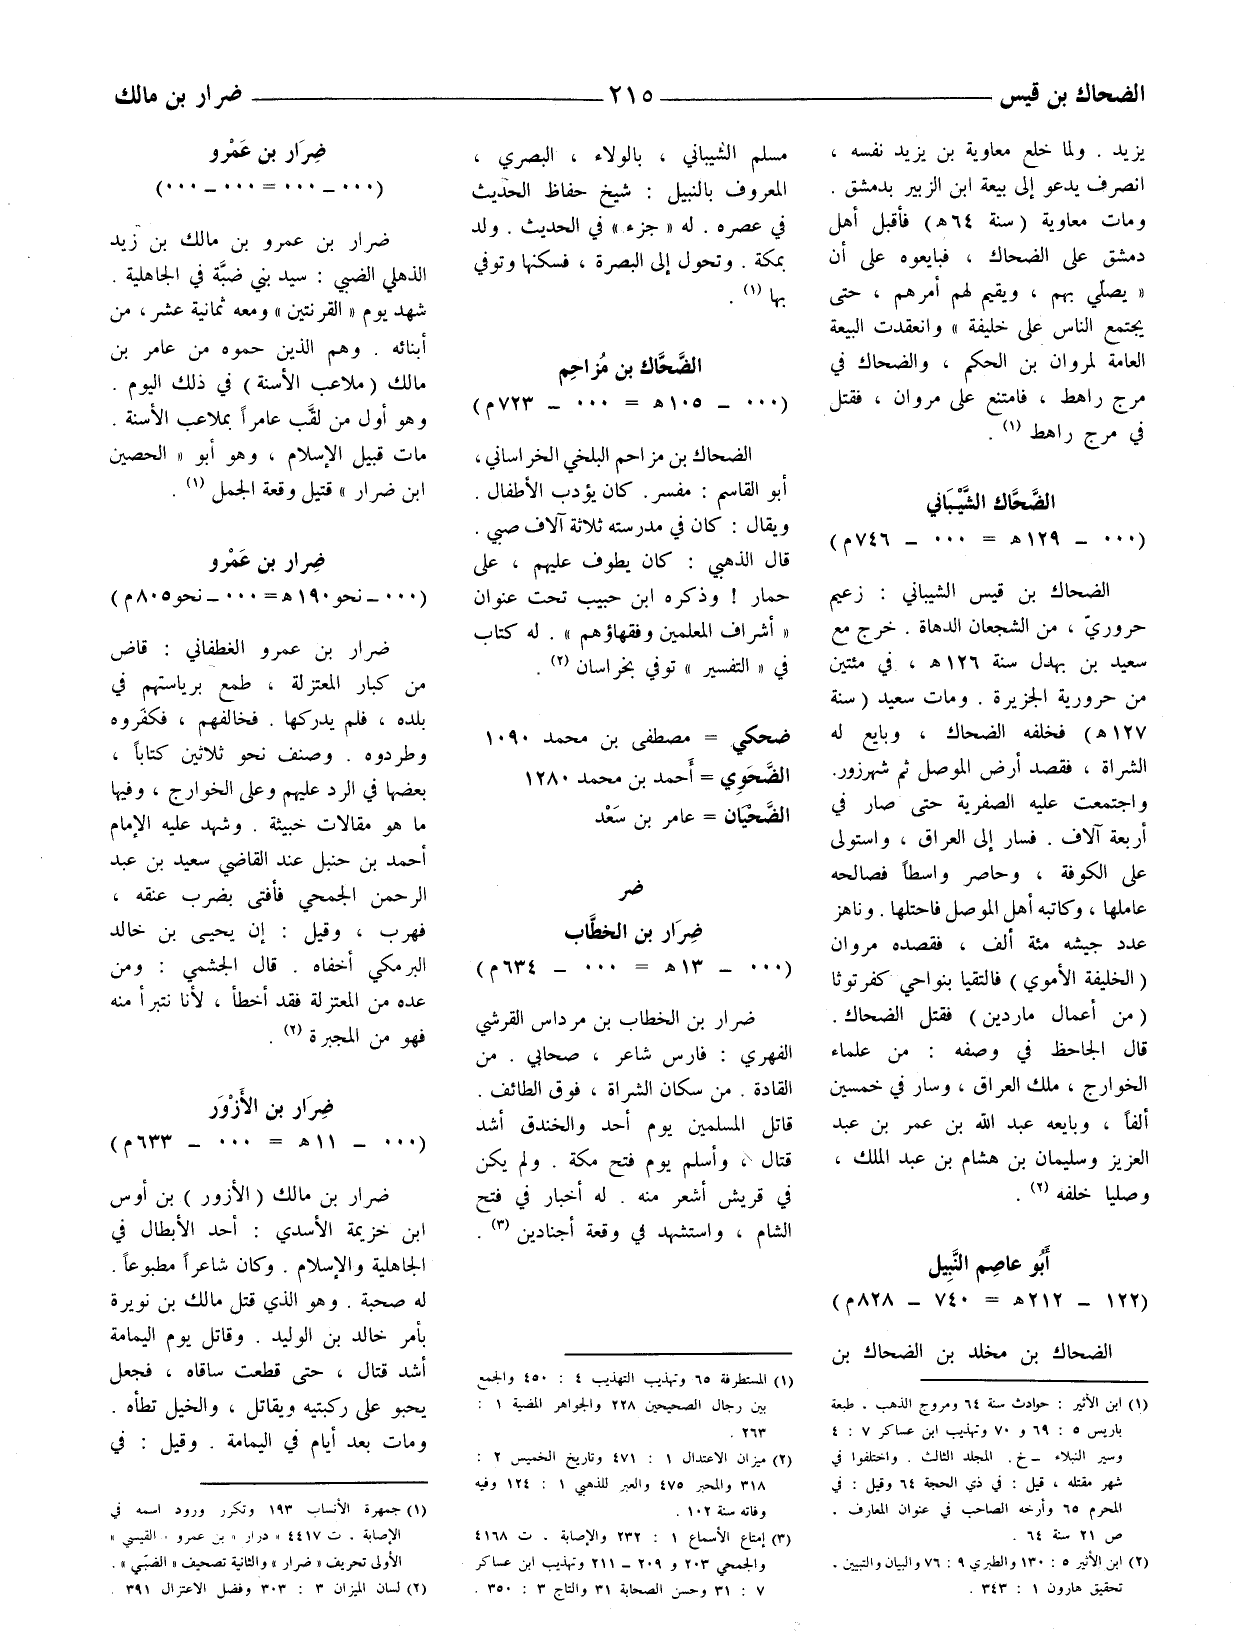 الضحاك بن قيس ـــــــ ٢١٥ ـــــــ ضرار بن مالك
يزيد . ولما خلع معاوية بن يزيد نفسه ،
انصرف يدعو إلى بيعة ابن الزبير بدمشق .
ومات معاوية ( سنة ٦٤ هـ ) فأقبل أهل
دمشق على الضحاك ، فبايعوه على أن
« يصلّي بهم ، ويقيم لهم أمرهم ، حتى
يجتمع الناس على خليفة » وانعقدت البيعة
العامة لمروان بن الحكم ، والضحاك في
مرج راهط ، فامتنع على مروان ، فقتل
في مرج راهط (١) .
الضَّحَّاك الشَّيْبَاني
(٠٠٠ ــ ١٢٩ هـ = ٠٠٠ ــ ٧٤٦ م)
الضحاك بن قيس الشيباني : زعيم
حروريّ ، من الشجعان الدهاة . خرج مع
سعيد بن بهدل سنة ١٢٦ هـ ، في مئتين
من حرورية الجزيرة . ومات سعيد ( سنة
١٢٧ هـ ) فخلفه الضحاك ، وبايع له
الشراة ، فقصد أرض الموصل ثم شهرزور.
واجتمعت عليه الصفرية حتى صار في
أربعة آلاف . فسار إلى العراق ، واستولى
على الكوفة ، وحاصر واسطاً فصالحه
عاملها ، وكاتبه أهل الموصل فاحتلها . وناهز
عدد جيشه مئة ألف ، فقصده مروان
( الخليفة الأموي ) فالتقيا بنواحي كفرتوثا
( من أعمال ماردين ) فقتل الضحاك .
قال الجاحظ في وصفه : من علماء
الخوارج ، ملك العراق ، وسار في خمسين
ألفاً ، وبايعه عبد الله بن عمر بن عبد
العزيز وسليمان بن هشام بن عبد الملك ،
وصليا خلفه (٢) .
أَبُو عاصِم النَّبِيل
(١٢٢ ــ ٢١٢ هـ = ٧٤٠ ــ ٨٢٨ م)
الضحاك بن مخلد بن الضحاك بن
(١) ابن الأثير : حوادث سنة ٦٤ ومروج الذهب . طبعة
باريس ٥ : ٦٩ و ٧٠ وتهذيب ابن عساكر ٧ : ٤
وسير النبلاء ــ خ . المجلد الثالث . واختلفوا في
شهر مقتله ، قيل : في ذي الحجة ٦٤ وقيل : في
المحرم ٦٥ وأرخه الصاحب في عنوان المعارف .
ص ٢١ سنة ٦٤ .
(٢) ابن الأثير ٥ : ١٣٠ والطبري ٩ : ٧٦ والبيان والتبيين .
تحقيق هارون ١ : ٣٤٣ .
مسلم الشيباني ، بالولاء ، البصري ،
المعروف بالنبيل : شيخ حفاظ الحديث
في عصره . له « جزء » في الحديث . ولد
بمكة . وتحول إلى البصرة ، فسكنها وتوفي
بها (١) .
الضَّحَّاك بن مُزاحِم
(٠٠٠ ــ ١٠٥ هـ = ٠٠٠ ــ ٧٢٣ م)
الضحاك بن مزاحم البلخي الخراساني ،
أبو القاسم : مفسر. كان يؤدب الأطفال .
ويقال : كان في مدرسته ثلاثة آلاف صبي .
قال الذهبي : كان يطوف عليهم ، على
حمار ! وذكره ابن حبيب تحت عنوان
« أشراف المعلمين وفقهاؤهم » . له كتاب
في « التفسير » توفي بخراسان (٢) .
ضحكي = مصطفى بن محمد ١٠٩٠
الضَّحَوِي = أَحمد بن محمد ١٢٨٠
الضَّحْيَان = عامر بن سَعْد
ضر
ضِرَار بن الخطَّاب
(٠٠٠ ــ ١٣ هـ = ٠٠٠ ــ ٦٣٤ م)
ضرار بن الخطاب بن مرداس القرشي
الفهري : فارس شاعر ، صحابي . من
القادة . من سكان الشراة ، فوق الطائف .
قاتل المسلمين يوم أحد والخندق أشد
قتال ، وأسلم يوم فتح مكة . ولم يكن
في قريش أشعر منه . له أخبار في فتح
الشام ، واستشهد في وقعة أجنادين (٣) .
(١) المستطرفة ٦٥ وتهذيب التهذيب ٤ : ٤٥٠ والجمع
بين رجال الصحيحين ٢٢٨ والجواهر المضية ١ :
٢٦٣ .
(٢) ميزان الاعتدال ١ : ٤٧١ وتاريخ الخميس ٢ :
٣١٨ والمحبر ٤٧٥ والعبر للذهبي ١ : ١٢٤ وفيه
وفاته سنة ١٠٢ .
(٣) إمتاع الأسماع ١ : ٢٣٢ والإصابة . ت ٤١٦٨
والجمحي ٢٠٣ و ٢٠٩ ــ ٢١١ وتهذيب ابن عساكر
٧ : ٣١ وحسن الصحابة ٣١ والتاج ٣ : ٣٥٠ .
ضِرَار بن عَمْرو
(٠٠٠ ــ ٠٠٠ = ٠٠٠ ــ ٠٠٠)
ضرار بن عمرو بن مالك بن زيد
الذهلي الضبي : سيد بني ضبَّة في الجاهلية .
شهد يوم « القرنتين » ومعه ثمانية عشر ، من
أبنائه . وهم الذين حموه من عامر بن
مالك ( ملاعب الأسنة ) في ذلك اليوم .
وهو أول من لقَّب عامراً بملاعب الأسنة .
مات قبيل الإسلام ، وهو أبو « الحصين
ابن ضرار » قتيل وقعة الجمل (١) .
ضِرار بن عَمْرو
(٠٠٠ ــ نحو ١٩٠ هـ = ٠٠٠ ــ نحو ٨٠٥ م)
ضرار بن عمرو الغطفاني : قاض
من كبار المعتزلة ، طمع برياستهم في
بلده ، فلم يدركها . فخالفهم ، فكفّروه
وطردوه . وصنف نحو ثلاثين كتاباً ،
بعضها في الرد عليهم وعلى الخوارج ، وفيها
ما هو مقالات خبيثة . وشهد عليه الإمام
أحمد بن حنبل عند القاضي سعيد بن عبد
الرحمن الجمحي فأفتى بضرب عنقه ،
فهرب ، وقيل : إن يحيى بن خالد
البرمكي أخفاه . قال الجشمي : ومن
عده من المعتزلة فقد أخطأ ، لأنا نتبرأ منه
فهو من المجبرة (٢) .
ضِرَار بن الأَزْوَر
(٠٠٠ ــ ١١ هـ = ٠٠٠ ــ ٦٣٣ م)
ضرار بن مالك ( الأزور ) بن أوس
ابن خزيمة الأسدي : أحد الأبطال في
الجاهلية والإسلام . وكان شاعراً مطبوعاً .
له صحبة . وهو الذي قتل مالك بن نويرة
بأمر خالد بن الوليد . وقاتل يوم اليمامة
أشد قتال ، حتى قطعت ساقاه ، فجعل
يحبو على ركبتيه ويقاتل ، والخيل تطأه .
ومات بعد أيام في اليمامة . وقيل : في
(١) جمهرة الأنساب ١٩٣ وتكرر ورود اسمه في
الإصابة . ت ٤٤١٧ « درار » بن عمرو « القيسي »
الأولى تحريف « ضرار » والثانية تصحيف « الضبّي » .
(٢) لسان الميزان ٣ : ٣٠٣ وفضل الاعتزال ٣٩١ .